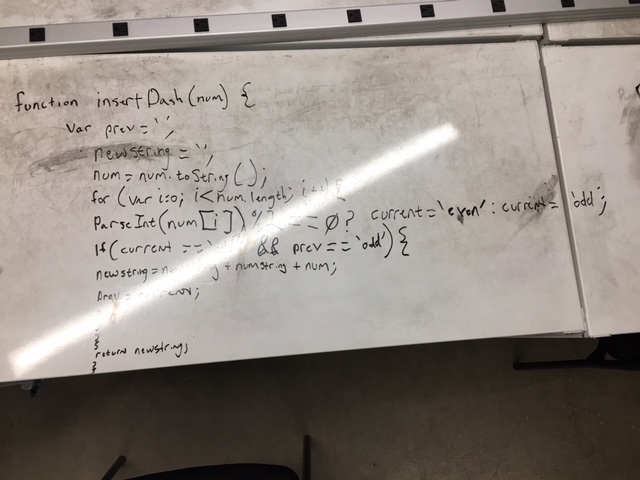 function insertDash(num) {
var prev = '',
newstring = '',
num = num.toString();
for (var i=0; i<num.length; i++) {
ParseInt(num[i]) % == 0? current='even' : current = 'odd';
If (current == && prev == 'odd') {
newstring = + numstring + num;
}
return newstring;
}